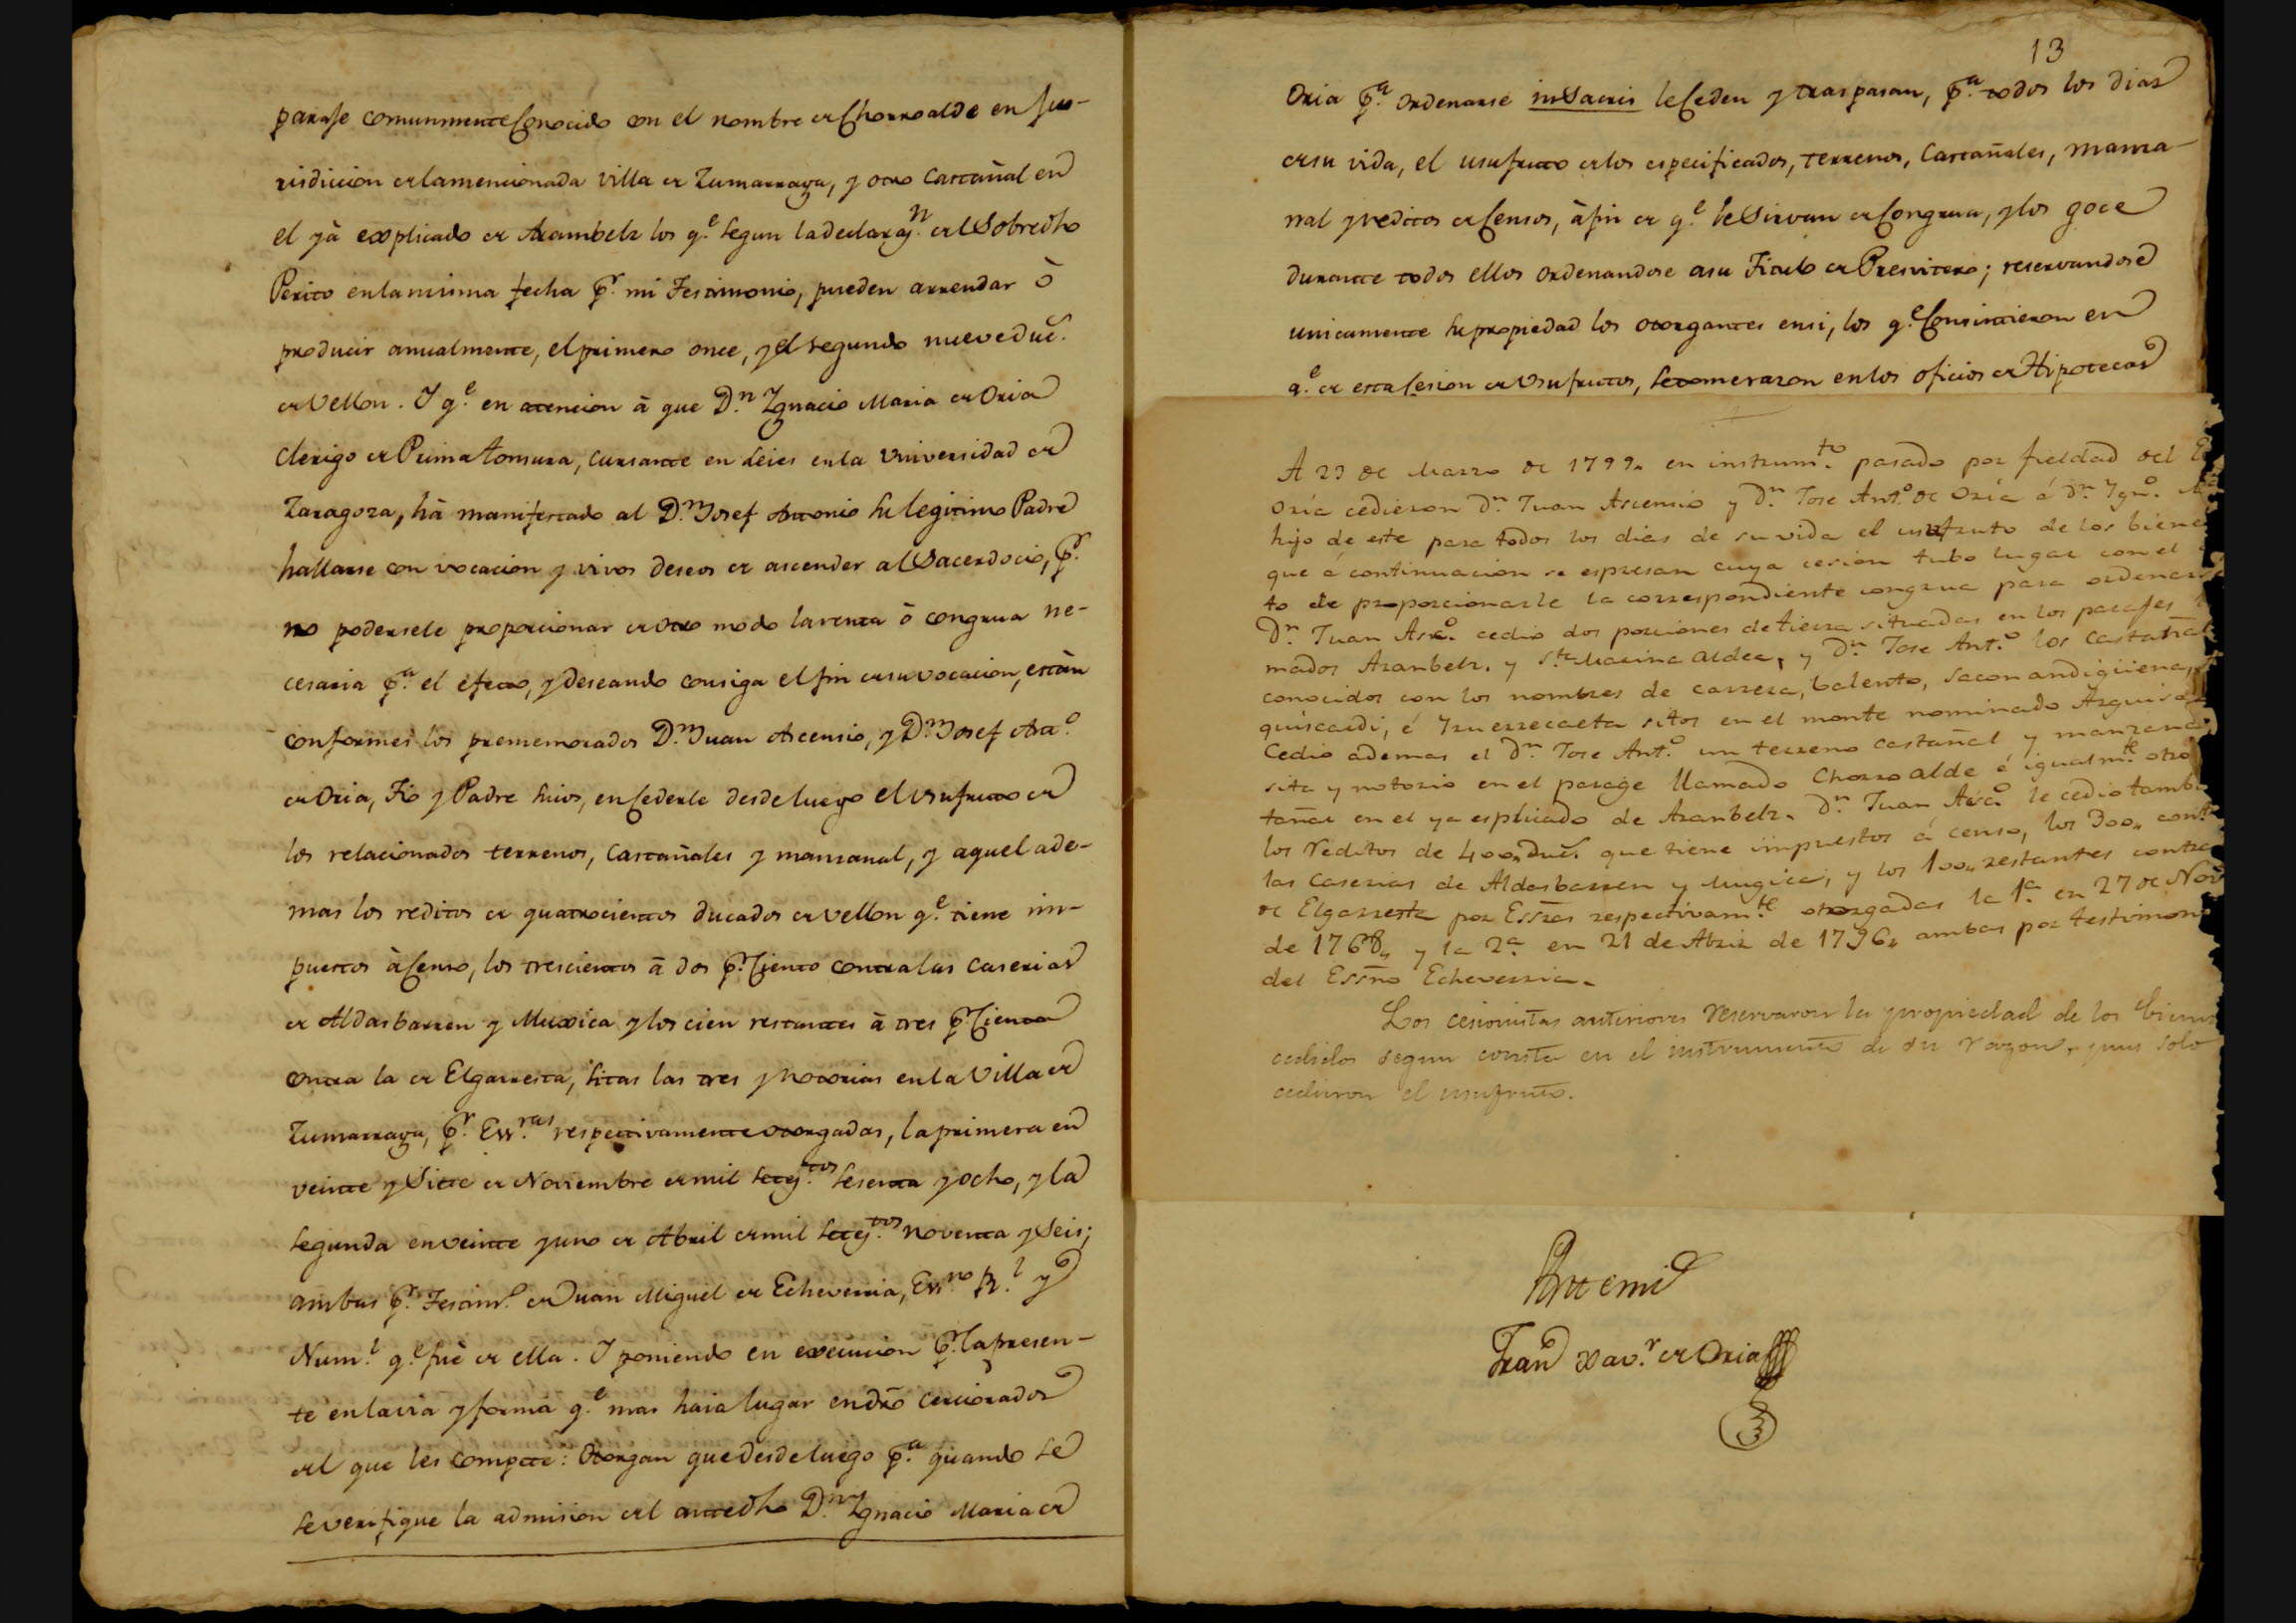 paraje comunmente Conocido con el nombre de Chorroalde en Ju-
risdiccion de la mencionada Villa de Zumarraga, y otro Castañal en
el yà explicado de Arambelz los q.e segun la declarac.n del Sobredho
Perito en la misma fecha p.r mi Testimonio, pueden arrendar ò
producir anualmente, el primero once, y el segundo nueve duc.s
de Vellon. Y q.e en atencion à que D.n Ygnacio Maria de Oria
Clerigo de Prima tonsura, cursante en Leies en la Universidad de
Zaragoza, hà manifestado al D.n Josef Antonio su legitimo Padre
hallarse con vocacion y vivos deseos de ascender al Sacerdocio, p.r
no podersele proporcionar de otro modo la renta ò congrua ne-
cesaria p.a el efecto, y deseando consiga el fin de su vocacion, estàn
conformes los prememorados D.n Juan Ascensio, y D.n Josef Ant.o
de Oria, Tio y Padre suios, en Cederle desde luego el Usufructo de
los relacionados terrenos, Castañales y manzanal, y aquel ade-
mas los reditos de quatrocientos ducados de vellon q.e tiene im-
puestos à Censo, los trescientos à dos p.r Ciento contra las Caserias
de Aldasbarren y Muxica y los cien restantes à tres p.r Ciento
contra la de Elgarresta, sitas las tres y Notorias en la Villa de
Zumarraga, p.r Ess.ras respectivamente otorgadas, la primera en
veinte y Siete de Noviembre de mil setec.tos sesenta y ocho, y la
segunda en veinte y uno de Abril de mil setec.tos noventa y Seis;
ambas p.r Testim.o de Juan Miguel de Echeverria, Ess.no R.l y
Num.l q.e fuè de ella. Y poniendo en execucion p.r la presen-
te en la via y forma q.e mas haia lugar en dro cerciorados
del que les compete: Otorgan que desde luego p.a quando se
se verifique la admision del antedho D.n Ygnacio Maria de
13
Oria p.a ordenarse in Sacris le Ceden y traspasan, p.a todos los dias
de su vida, el usufructo de los especificados, terrenos, Castañales, manza-
nal y reditos de Censos, à fin de q.e le Sirvan de Congrua, y los goce
durante todos ellos ordenandose a su Titulo de Presvitero; reservandose
unicamente su propiedad los otorgantes en si, los q.e Consintieron en
q.e de esta Cesion de Usufructos, se tome razon en los oficios de Hipotecas
A 23 de Marzo de 1799,, en instrum.to pasado por fieldad del
Oria cedieron D.n Juan Ascensio y D.n Jose Ant.o de Oria á D.n Ygn.o
hijo de este para todos los dias de su vida el usufruto de los biene
que á continuacion se espresan cuya cesion tubo lugar con el
to de proporcionarle la correspondiente congrua para ordenar
D.n Juan Asc.o cedio dos porciones de tierra situadas en los parajes
mados Aranbelz. y S.ta Marina aldea, y D.n Jose Ant.o los Castañal
conocidos con los nombres de carrera, balento, saconandigüena,
quiscardi, é Yruerrecaeta sitos en el monte nominado
Cedio ademas el D.n Jose Ant.o un terreno castañal y manzana
sita y notorio en el parage llamado Chorroalde é igualm.te otro
tañal en el ya esplicado de Aranbelz. D.n Juan Asc.o le cedio tambi
los reditos de 400,, duc.s que tiene impuestos á censo, los 300,, cont
las Caserias de Aldasbarren y Mugica; y los 100,, restantes contra
de Elgarresta por Essras respectivam.te otorgadas la 1.a en 27 de Nov
de 1768,, y la 2.a en 21 de Abril de 1796,, ambas por testimon
del Essno Echeverria.
Los cesionistas anteriores reservaron la propiedad de los bienes
cedidos segun consta en el instrumento de su razon, pues solo
cedieron el usufruto.
Ante mi
Fran.co Xav.r de Oria